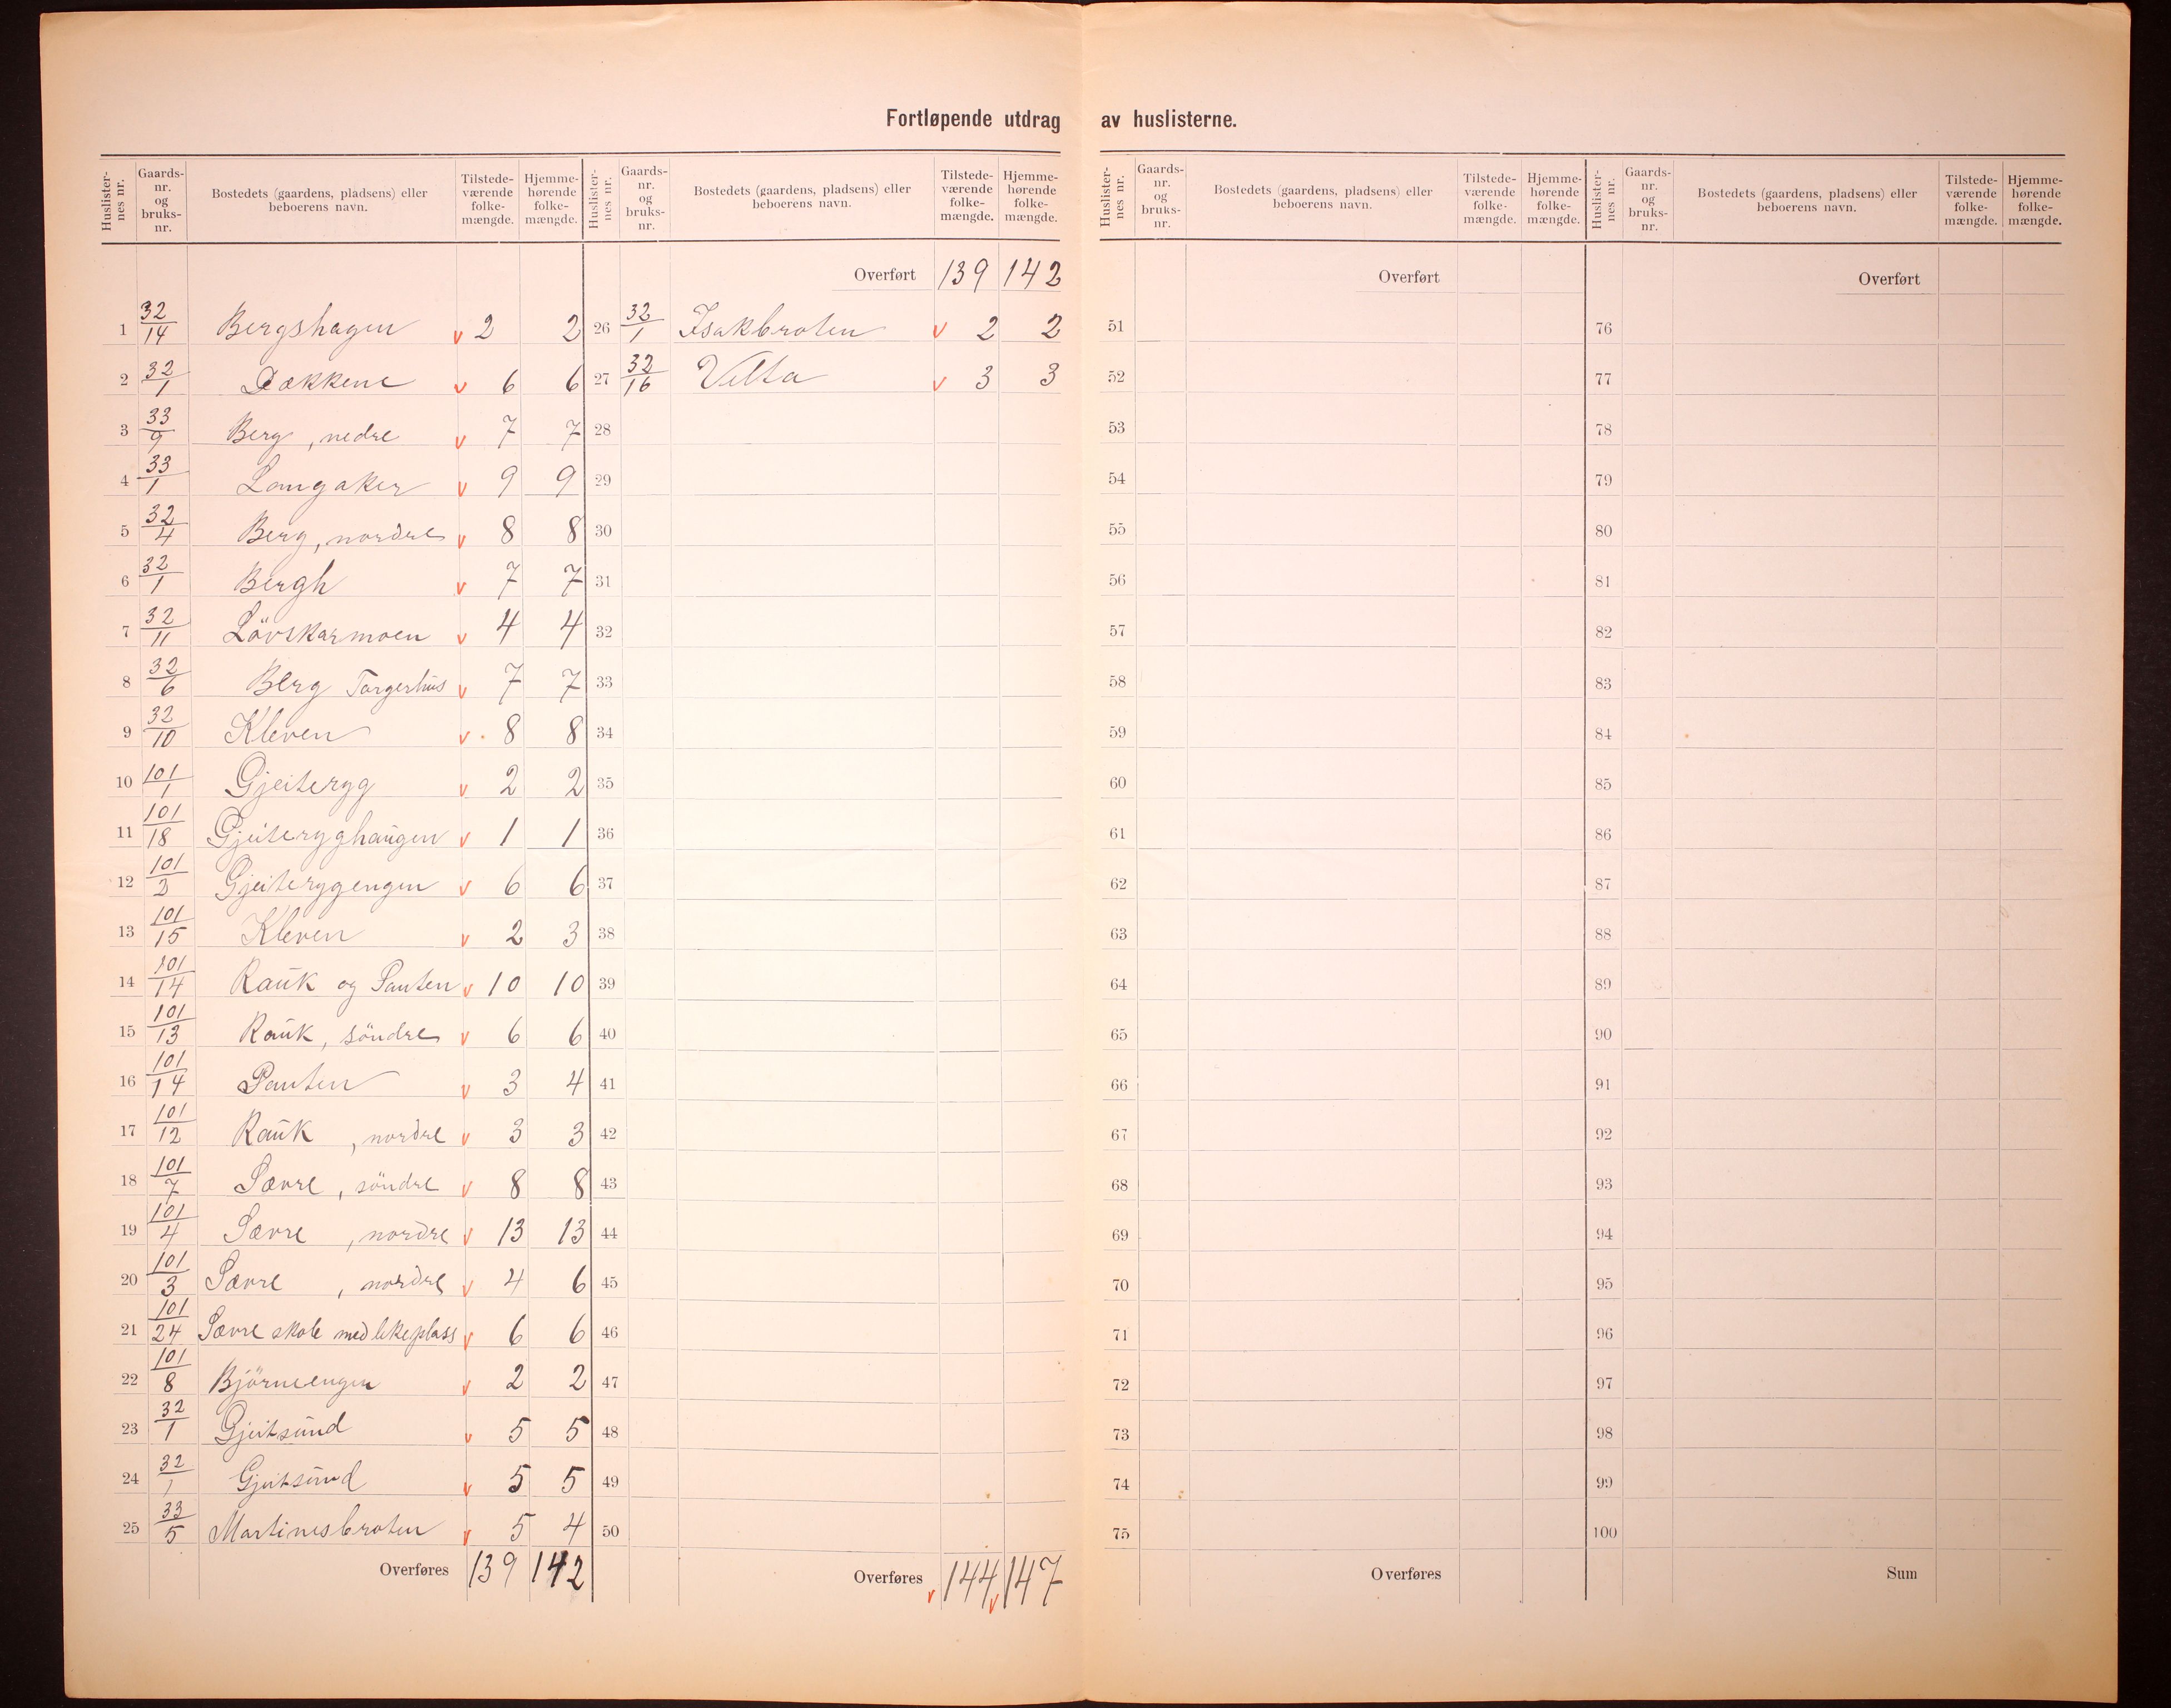 Fortløpende utdrag av huslisterne.
Huslister-nes nr. Gaards-nr. og bruks-nr. Bostedets (gaardens, pladsens) eller beboerens navn. Tilstede-værende folke-mængde. Hjemme-hørende folke-mængde.
1 32/14 Bergshagen v 2 2
2 32/1 Dækkene v 6 6
3 33/9 Berg, nedre v 7 7
4 33/1 Langaker v 9 9
5 32/4 Berg, nordre v 8 8
6 32/1 Bergh v 7 7
7 32/11 Lövskarmoen v 4 4
8 32/6 Berg Torgerhus v 7 7
9 32/10 Kleven v 8 8
10 101/1 Gjeiteryg v 2 2
11 101/18 Gjeiteryghaugen v 1 1
12 101/2 Gjeiterygengen v 6 6
13 101/15 Kleven v 2 3
14 101/14 Rauk og Santen v 10 10
15 101/13 Rauk, söndre v 6 6
16 101/14 Santen v 3 4
17 101/12 Rauk, nordre v 3 3
18 101/7 Sævre, söndre v 8 8
19 101/4 Sævre, nordre v 13 13
20 101/3 Sævre, nordre v 4 6
21 101/24 Sævre skole med lekeplass v 6 6
22 101/8 Björneengen v 2 2
23 32/1 Gjeitsund v 5 5
24 32/1 Gjeitsund v 5 5
25 33/5 Martinesbroten v 5 4
Overføres 139 142
Huslister-nes nr. Gaards-nr. og bruks-nr. Bostedets (gaardens, pladsens) eller beboerens navn. Tilstede-værende folke-mængde. Hjemme-hørende folke-mængde.
Overført 139 142
26 32/1 Isakbroten v 2 2
27 32/16 Velta v 3 3
28
29
30
31
32
33
34
35
36
37
38
39
40
41
42
43
44
45
46
47
48
49
50
Overføres v 144 v 147
Huslister-nes nr. Gaards-nr. og bruks-nr. Bostedets (gaardens, pladsens) eller beboerens navn. Tilstede-værende folke-mængde. Hjemme-hørende folke-mængde.
Overført
51
52
53
54
55
56
57
58
59
60
61
62
63
64
65
66
67
68
69
70
71
72
73
74
75
Overføres
Huslister-nes nr. Gaards-nr. og bruks-nr. Bostedets (gaardens, pladsens) eller beboerens navn. Tilstede-værende folke-mængde. Hjemme-hørende folke-mængde.
Overført
76
77
78
79
80
81
82
83
84
85
86
87
88
89
90
91
92
93
94
95
96
97
98
99
100
Sum